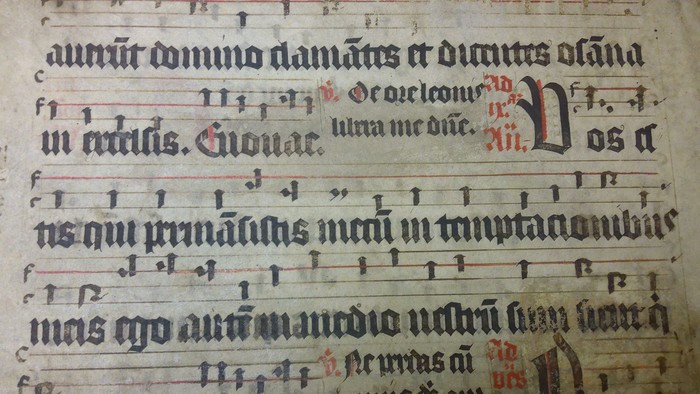 auerūt domino clamātes et dicentes osāna
in excelsis. Euouae. ℣. De ore leonis libera me dñe. Ad ix.ā Añ. Vos es
tis qui permāsistis mecū in temptacionibus
meis ego autē in medio uestrū sum sicut q̄
℣. Ne perdas cū Ad